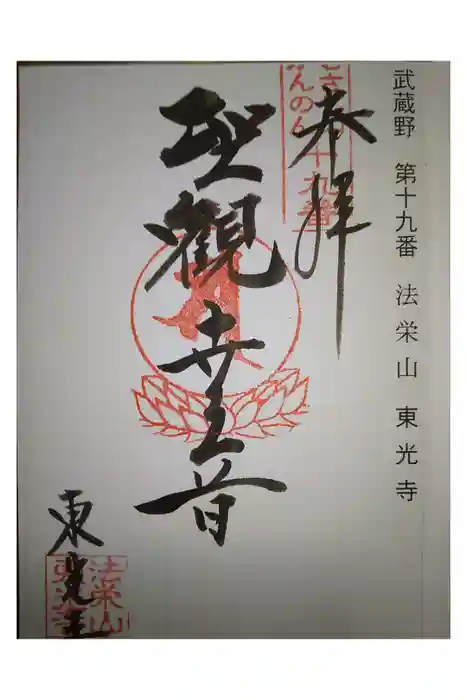 武蔵野 第十九番 法栄山 東光寺
奉拝
聖観世音
東光寺
法栄山